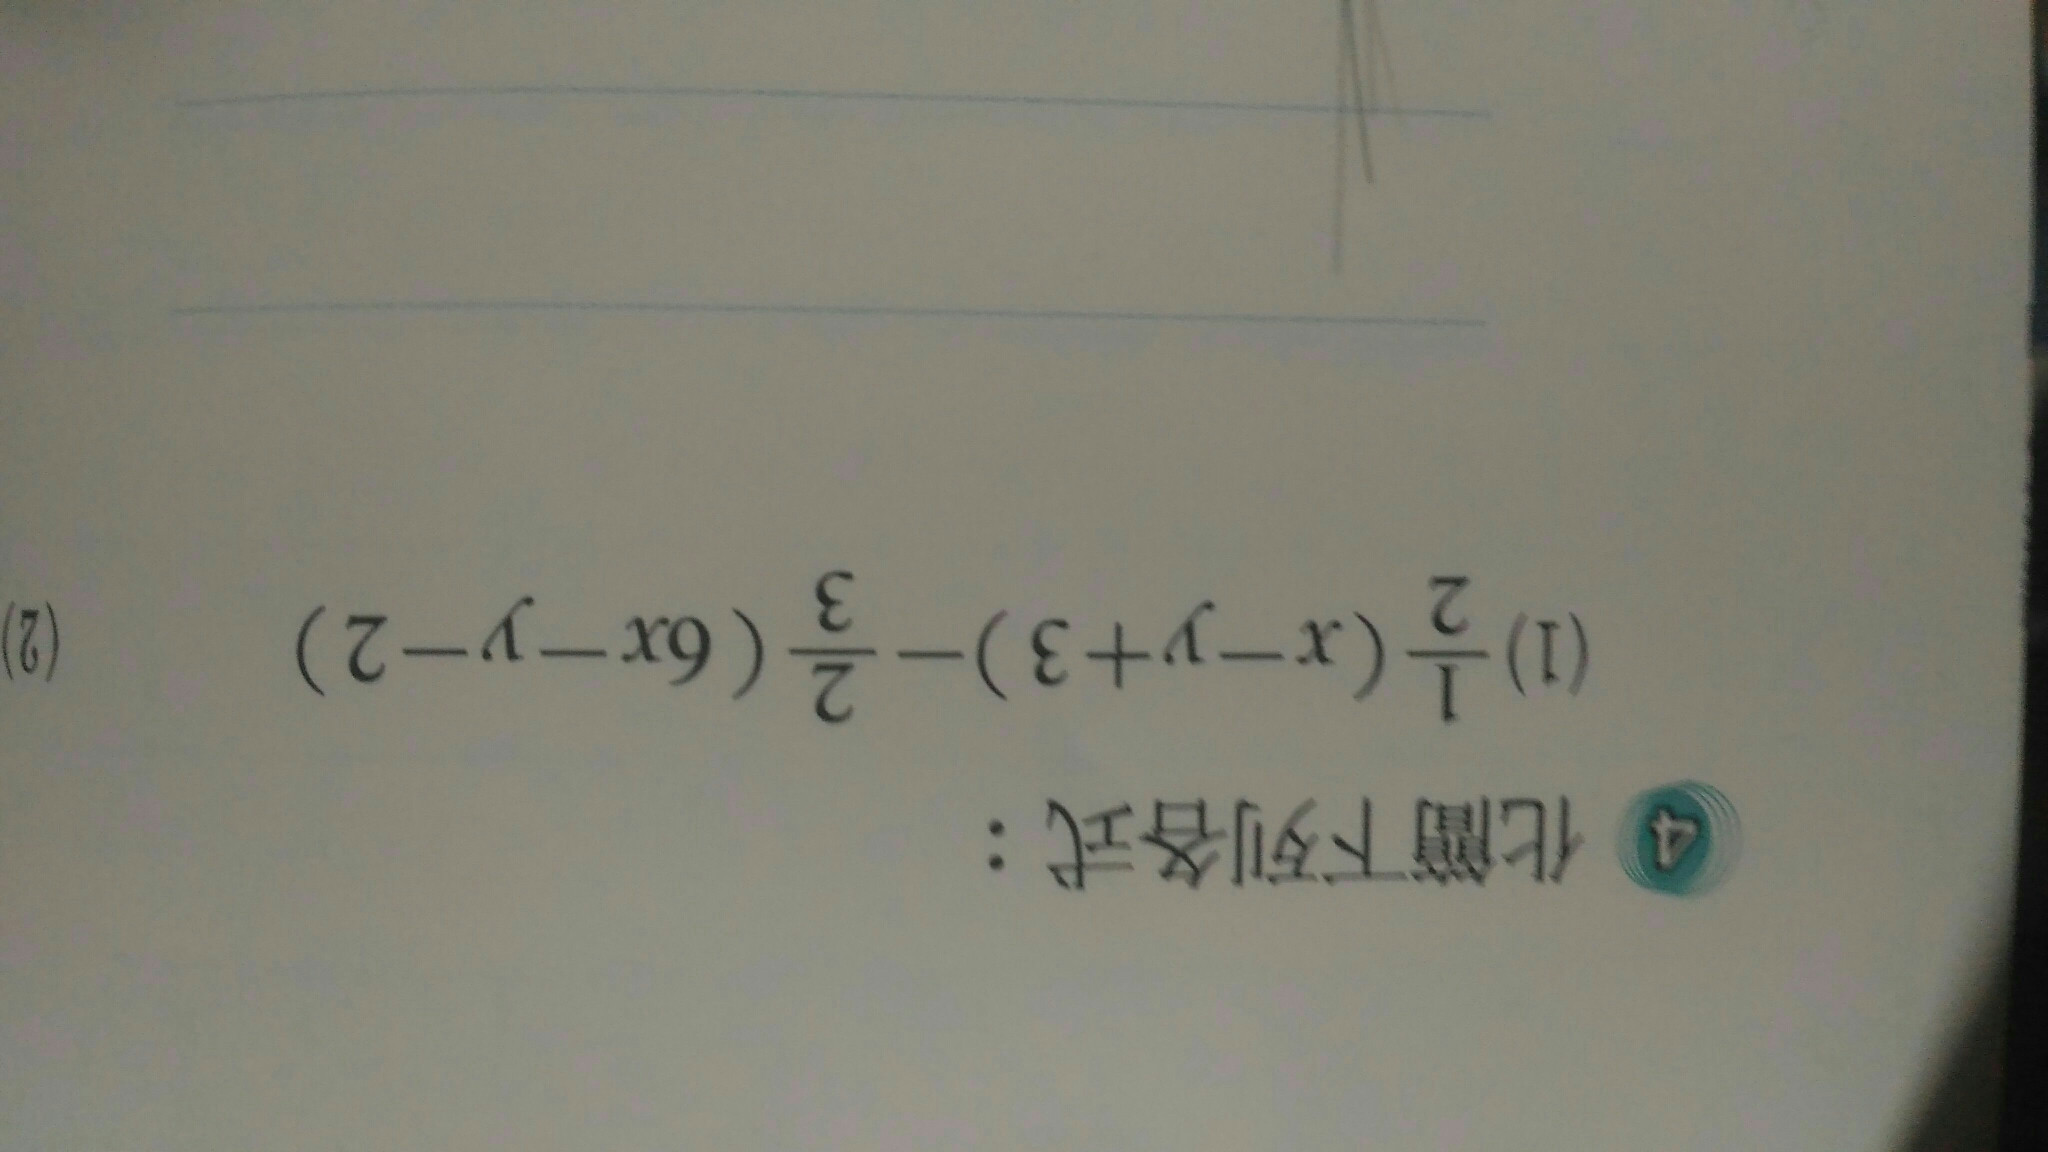 4 化簡下列各式：
(1) \frac{1}{2}(x-y+3)-\frac{2}{3}(6x-y-2) (2)